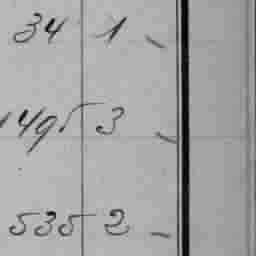 34 1 -
1495 3 -
535 2 -